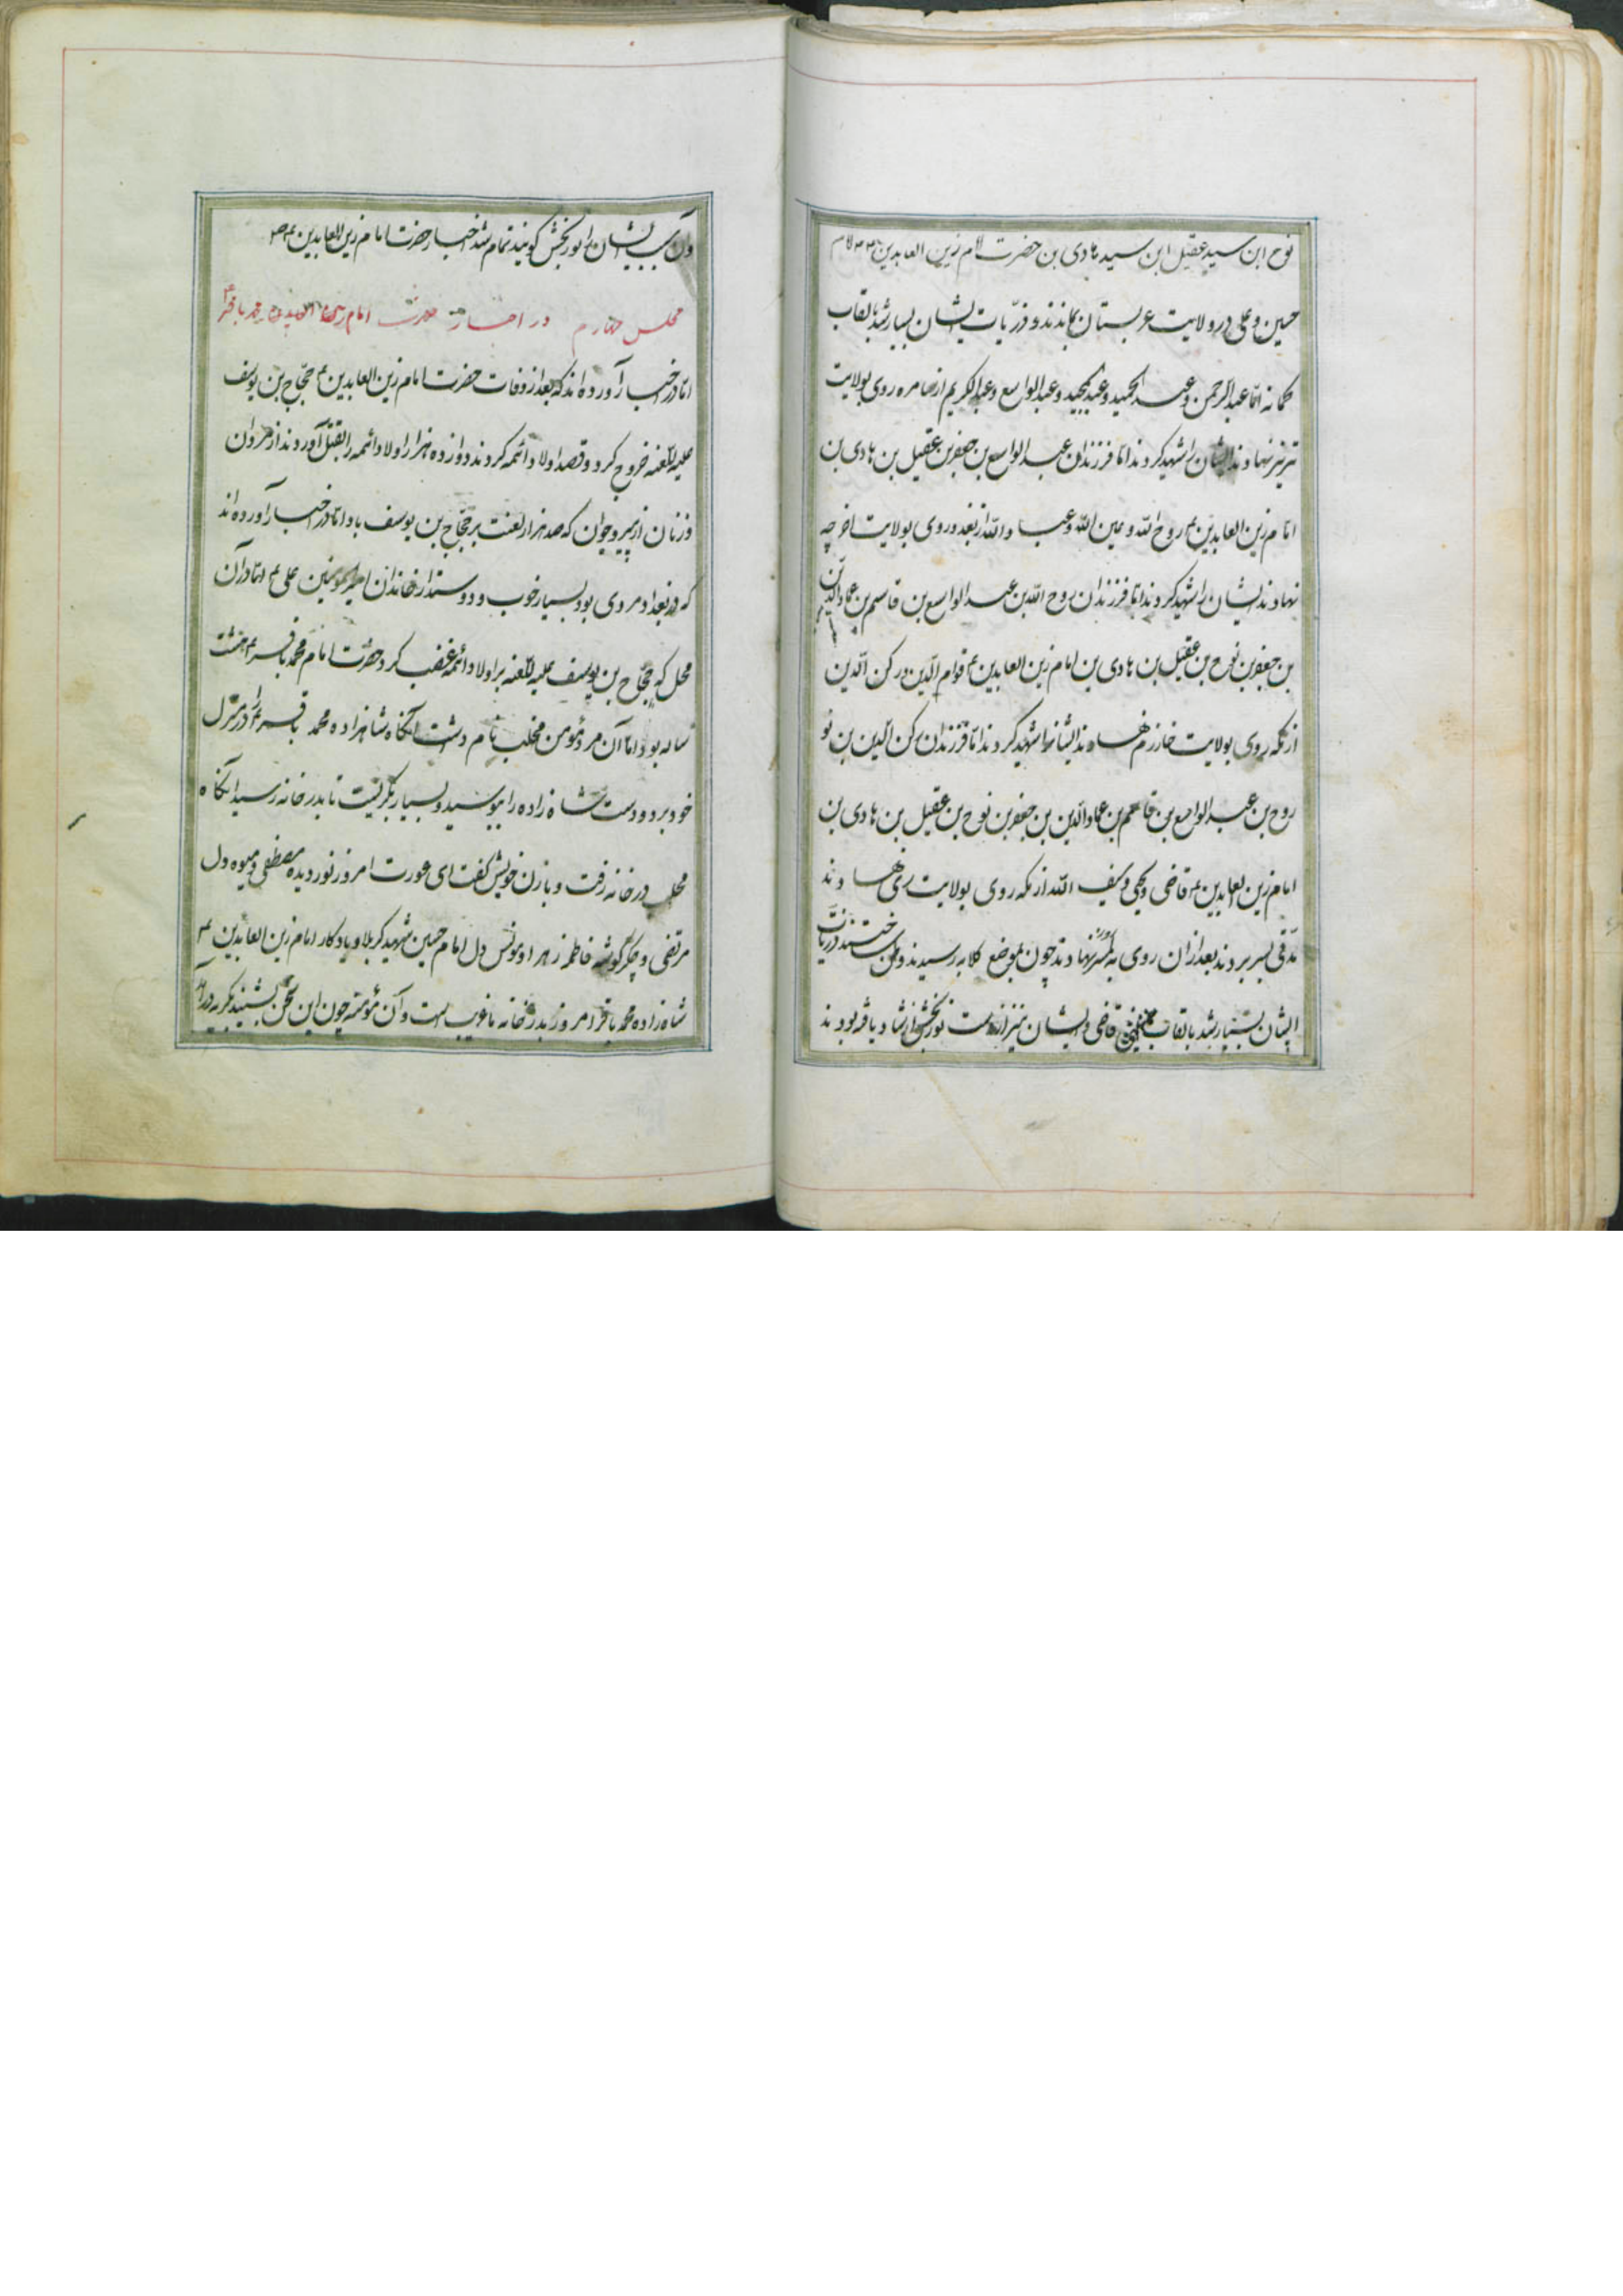 نوح ابن سید عقیل ابن سید هادی بن حضرت امام زین العابدین
حسین و علی در ولایت عربستان بماندند و ذریات ایشان بسیار شد بالقاب
اما عبدالرحمن و عبد الحمید و عبدالمجید و عبدالواسع و عبدالکریم از سامره روی بولایت
تبریز نهادند ایشان را شهید کردند اما فرزندان عبدالواسع بن جعفر بن عقیل بن هادی بن
امام زین العابدین روح الله و عین الله و عباد الله از بغداد روی بولایت
نهادند ایشان را شهید کردند اما فرزندان روح الله بن عبد الواسع بن قاسم بن عمادالدین
بن جعفر بن نوح بن عقیل بن هادی بن امام زین العابدین ع قوام الدین و رکن الدین
از مکه روی بولایت خارزم نهادند ایشانرا شهید کردند اما فرزندان رکن الدین بن
روح بن عبد الواسع بن قاسم بن عمادالدین بن جعفر بن نوح بن عقیل بن هادی بن
امام زین العابدین ع قاضی و یحیی و سیف الله از مکه روی بولایت ری نهادند
مدتی بسر بردند بعد از ان روی نهادند چون بموضع کلابه رسیدند وطن ساختند ذریات
ایشان بسیار شد بالقاب قاضی و ایشان نیز ارادت نوربخش ارشاد یافته بودند
وآن سبب ایشان را نوربخش گویند تمام شد اخبار حضرت امام زین العابدین ع
مجلس چهارم در اخبار حضرت امام محمد باقر ع
اما در خبر آورده اند که بعد از وفات حضرت امام زین العابدین ع حجاج بن یوسف
علیه للعنه خروج کرد و قصد اولاد ائمه کردند دوازده هزار اولاد ائمه را بقتل آوردند از مردان
و زنان از پیر و جوان که صد هزار لعنت بر حجاج بن یوسف باد اما در خبر آورده اند
که در بغداد مردی بود بسیار خوب و دوستدار خاندان امیر المومنین علی ع اما در آن
محل که حجاج بن یوسف علیه للعنه بر اولاد ائمه غضب کرد حضرت امام محمد باقر ع هشت
ساله بود اما آن مرد مؤمن مخلب نام داشت آنگاه شاهزاده محمد باقر ع را در منزل
خود برد و دست شاه زاده را ببوسید و بسیار بگریست تا بدر خانه رسید آنگاه
مخلب در خانه رفت و با زن خویش گفت ای عورت امروز نور دیده مصطفی و میوه دل
مرتضی و جگر گوشه فاطمه زهرا و مونس دل امام حسین شهید کربلا و یادگار امام زین العابدین ع
شاه زاده محمد باقر امروز بدر خانه ما غریب است و آن مؤمنه چون این سخن بشنید بگریه درآمد